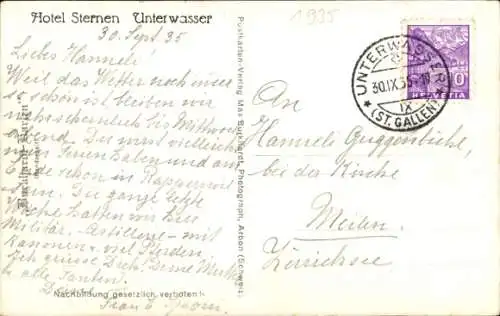 Hotel Sternen Unterwasser
1935
30. Sept 35
Liebes Hanneli!
Weil das Wetter noch immer
so schön ist bleiben wir
wahrscheinlich bis Mittwoch
abend. Du wirst vielleicht
Ferien haben und am
Ende schon in Rapperswil
sein. Die ganze letzte
Woche hatten wir hier
Militär. Artillerie – mit
Kanonen u. viel Pferden.
Ich grüsse Dich, Deine
u. alle Tanten.
Nachbildung gesetzlich verboten!
"Burkhardt-Karten"
Postkarten-Verlag Max Burkhardt, Photograph, Arbon (Schweiz)
UNTERWASSER
30.IX.35
IX
(ST. GALLEN)
10
HELVETIA
An
Hanneli Guggenbühl
bei der Kirche
Meilen
Zürichsee